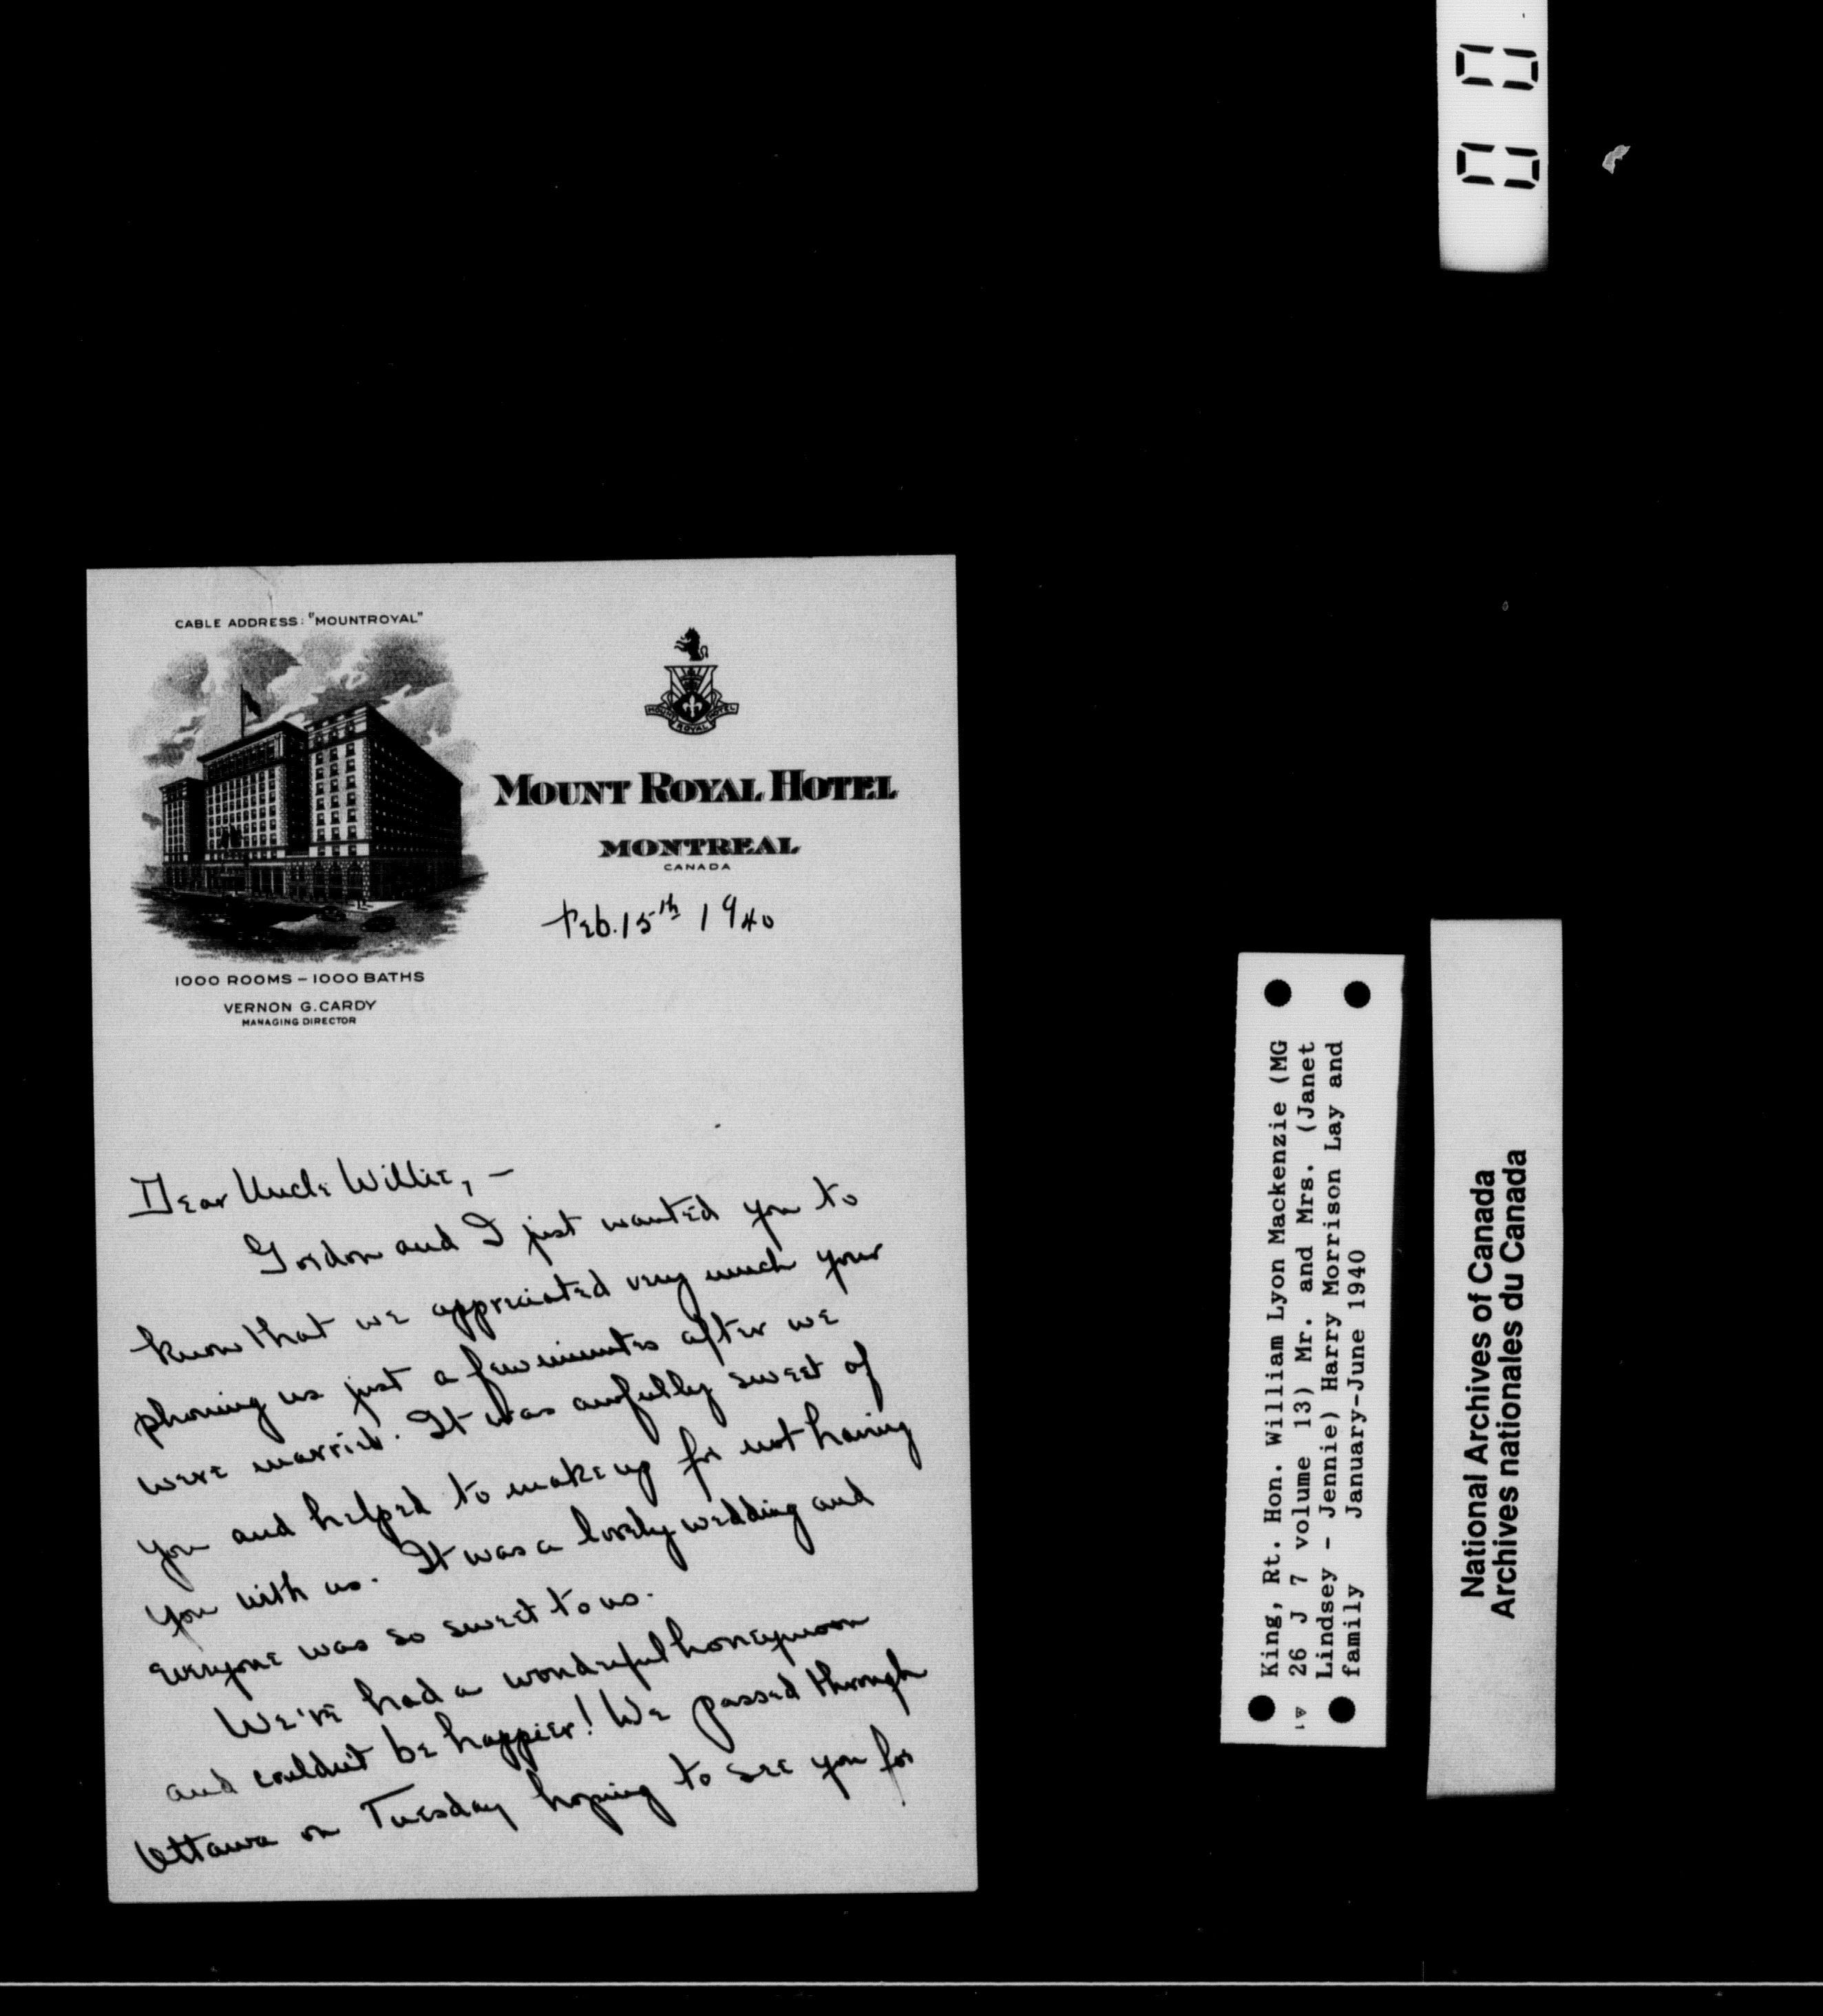 CABLE ADDRESS: "MOUNTROYAL"
MOUNT ROYAL HOTEL
MOUNT ROYAL HOTEL
MONTREAL
CANADA
Feb. 15th 1940
1000 ROOMS – 1000 BATHS
VERNON G. CARDY
MANAGING DIRECTOR
Dear Uncle Willie, –
Gordon and I just wanted you to
know that we appreciated very much your
phoning us just a few minutes after we
were married. It was awfully sweet of
you and helped to make up for not having
you with us. It was a lovely wedding and
everyone was so sweet to us.
We've had a wonderful honeymoon
and couldn't be happier! We passed through
Ottawa on Tuesday hoping to see you for
King, Rt. Hon. William Lyon Mackenzie (MG
26 J 7 volume 13) Mr. and Mrs. (Janet
Lindsey - Jennie) Harry Morrison Lay and
family January-June 1940
National Archives of Canada
Archives nationales du Canada